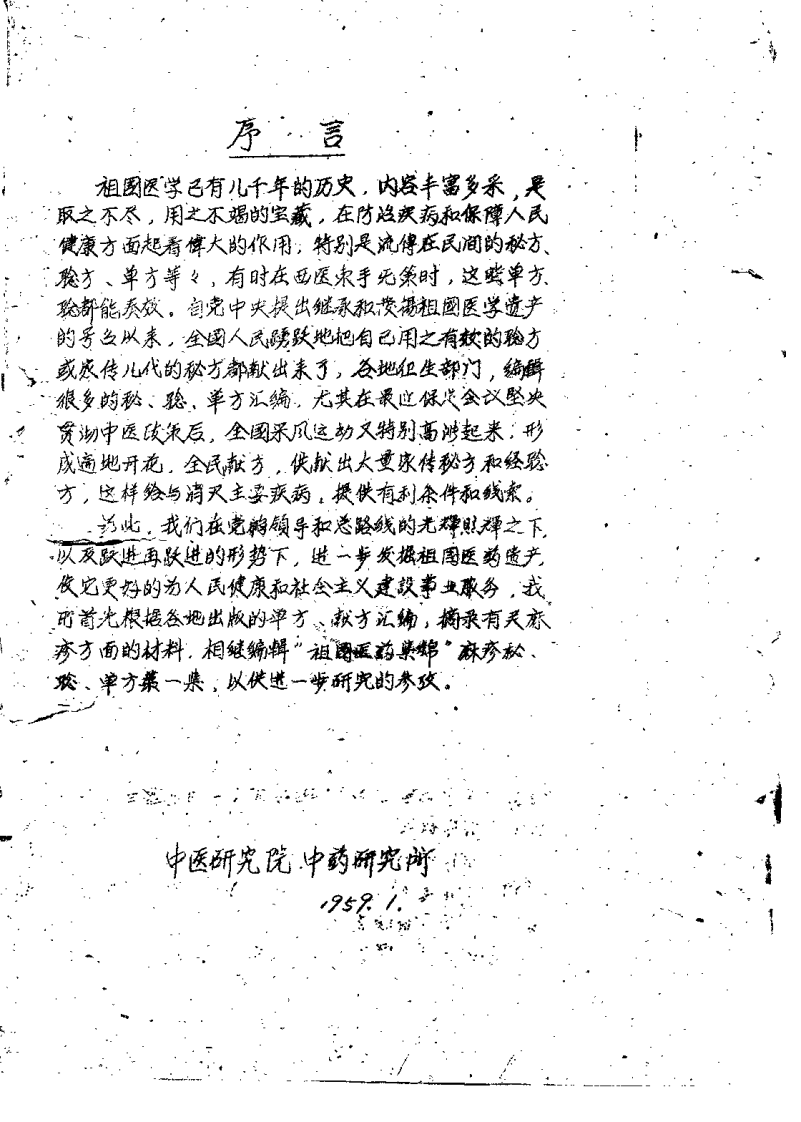 序言
祖国医学已有儿千年的历史，内容丰富多采，是
取之不尽，用之不竭的宝藏，在防治疾病和保障人民
健康方面起着偉大的作用；特别是流傳在民间的秘方、
驗方、单方等々，有时在西医束手无策时，这些单方、
驗都能奏效。自党中央提出继承和发揚祖國医学遗产
的号召以来，全國人民踴跃地把自己用之有效的驗方
或家传儿代的秘方都献出来了，各地卫生部门，编輯
很多的秘、驗、单方汇编。尤其在最近保定会议坚决
贯彻中医政策后，全國采风运动又特别高涨起来，形
成遍地开花，全民献方，供献出大量家传秘方和经驗
方，这样给与消灭主要疾病，提供有利条件和线索。
为此，我们在党的领导和总路线的光輝照輝之下，
以及跃进再跃进的形势下，进一步发掘祖国医药遗产，
使它更好的为人民健康和社会主义建設事业服务，我
所首先根据各地出版的单方、献方汇编，摘录有关麻
疹方面的材料，相继编輯"祖國医药集錦"麻疹秘、
驗、单方第一集，以供进一步研究的参攷。
中医研究院中药研究所
1959.1.